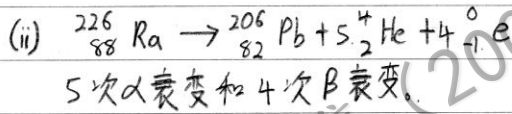 (ii) ²²⁶₈₈Ra → ²⁰⁶₈₂Pb + 5 ⁴₂He + 4 ⁰₋₁e
5次α衰变和4次β衰变。
(20